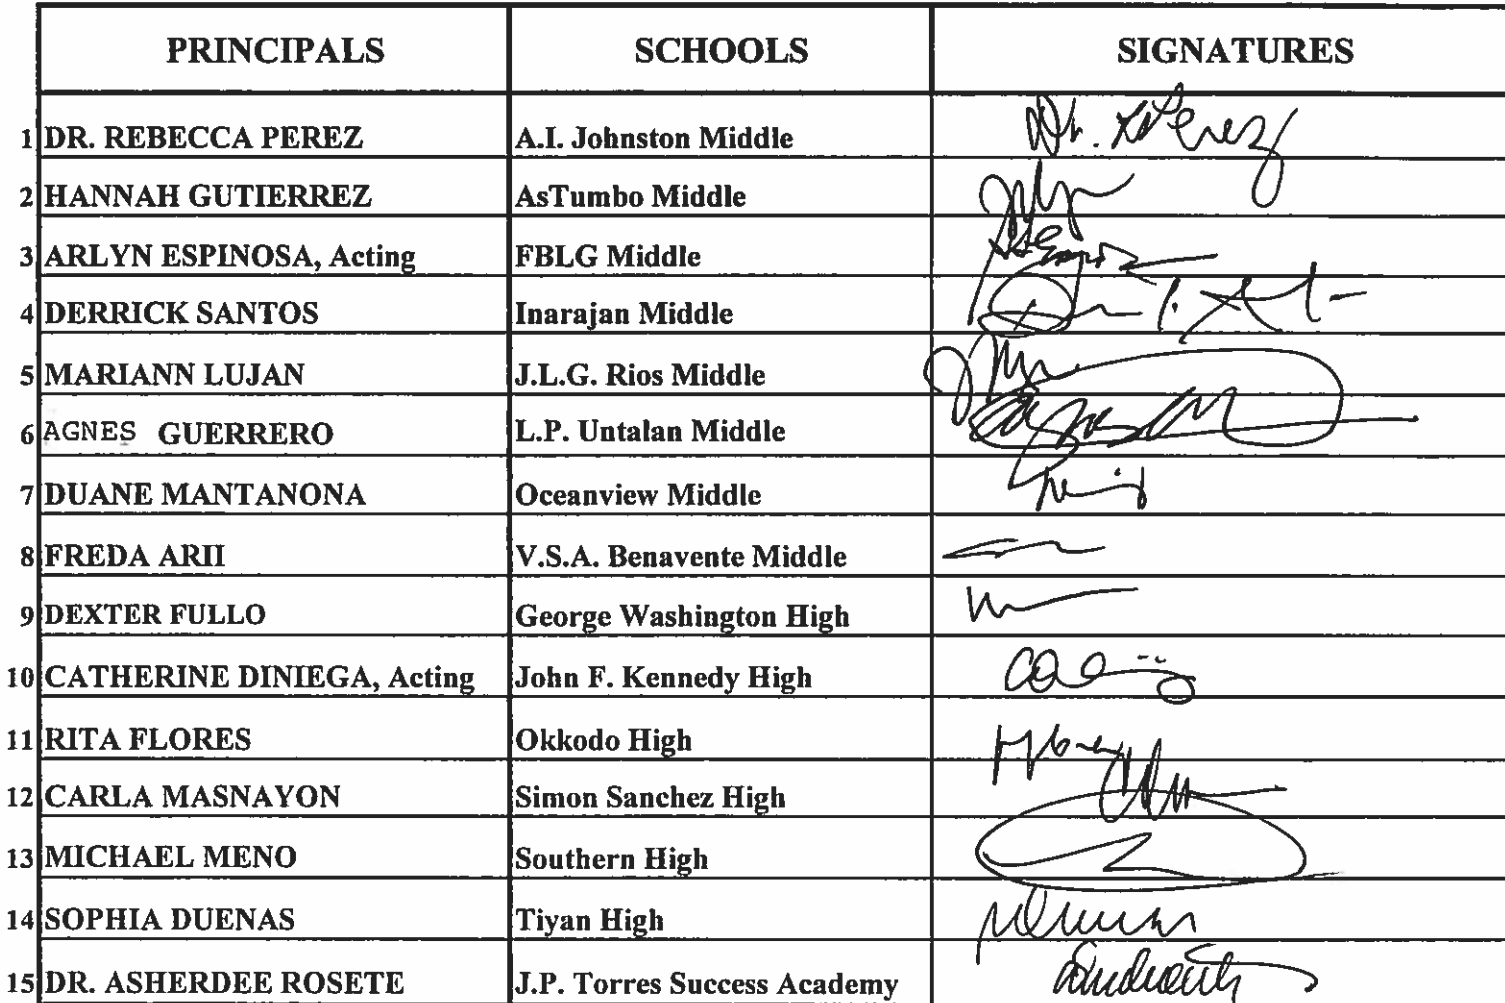 PRINCIPALS SCHOOLS SIGNATURES
1 DR. REBECCA PEREZ A.I. Johnston Middle Dr. Perez
2 HANNAH GUTIERREZ AsTumbo Middle
3 ARLYN ESPINOSA, Acting FBLG Middle
4 DERRICK SANTOS Inarajan Middle
5 MARIANN LUJAN J.L.G. Rios Middle
6 AGNES GUERRERO L.P. Untalan Middle
7 DUANE MANTANONA Oceanview Middle
8 FREDA ARII V.S.A. Benavente Middle
9 DEXTER FULLO George Washington High
10 CATHERINE DINIEGA, Acting John F. Kennedy High
11 RITA FLORES Okkodo High
12 CARLA MASNAYON Simon Sanchez High
13 MICHAEL MENO Southern High
14 SOPHIA DUENAS Tiyan High
15 DR. ASHERDEE ROSETE J.P. Torres Success Academy